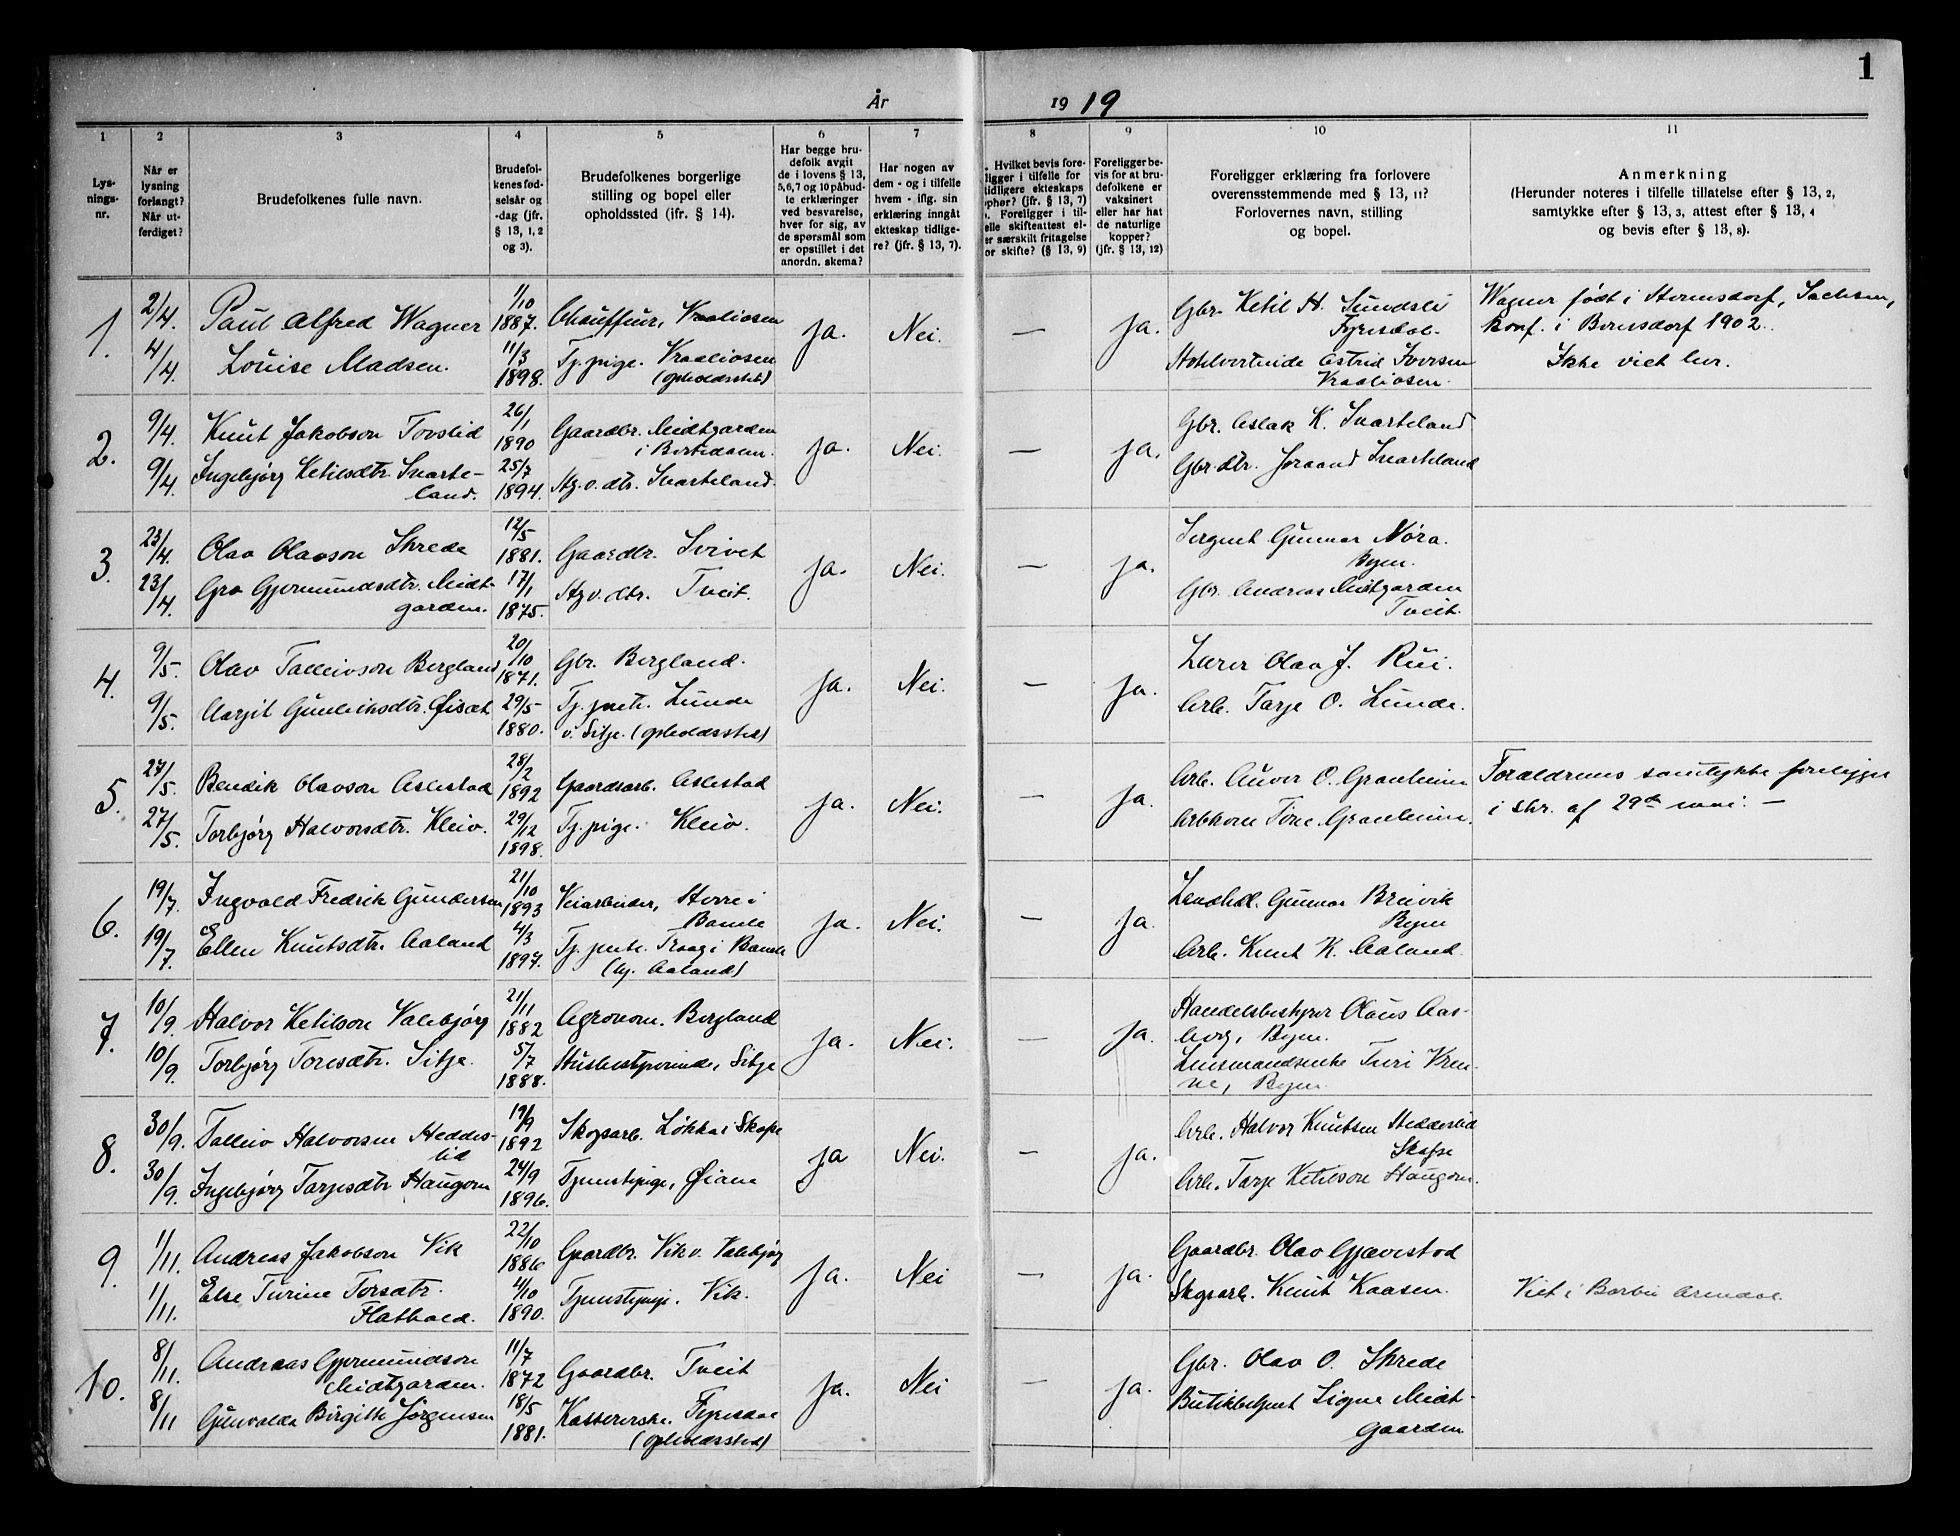 1
År 1919
1
2
3
4
5
6
7
8
9
10
11
Lys-
nings-
nr.
Når er
lysning
forlangt?
Når ut-
ferdiget?
Brudefolkenes fulle navn.
Brudefol-
kenes fød-
selsår og
-dag (jfr.
§ 13, 1, 2
og 3).
Brudefolkenes borgerlige
stilling og bopel eller
opholdssted (jfr. § 14).
Har begge bru-
defolk avgit
de i lovens § 13,
5,6,7 og 10 påbud-
te erklæringer
ved besvarelse,
hver for sig, av
de spørsmål som
er opstillet i det
anordn. skema?
Har nogen av
dem - og i tilfelle
hvem - iflg. sin
erklæring inngått
ekteskap tidlige-
re? (jfr. § 13, 7).
. Hvilket bevis fore-
ligger i tilfelle for
tidligere ekteskaps
ophør? (jfr. § 13, 7)
. Foreligger i til-
elle skifteattest el-
er særskilt fritagelse
or skifte? (§ 13, 9)
Foreligger be-
vis for at bru-
defolkene er
vaksinert
eller har hat
de naturlige
kopper?
(jfr. § 13, 12)
Foreligger erklæring fra forlovere
overensstemmende med § 13, 11?
Forlovernes navn, stilling
og bopel.
Anmerkning
(Herunder noteres i tilfelle tillatelse efter § 13, 2,
samtykke efter § 13, 3, attest efter § 13, 4
og bevis efter § 13, 8).
1.
2/4.
4/4.
Paul Alfred Wagner
Louise Madsen.
1/10
1887.
11/3
1898.
Chauffur, Vraaliosen
Tj. pige. Vraaliosen
(opholdssted)
Ja.
Nei.
—
Ja.
Gbr. Ketil H. Sundsli
Fyresdal.
Hotelvertinde Astrid Iversen
Vraaliosen.
Wagner født i Hermsdorf, Sachsen,
konf. i Bernsdorf 1902.
Ikke viet her.
2.
9/4.
9/4.
Knut Jakobson Tovslid
Ingebjørg Ketilsdtr. Svarte-
land.
26/1
1890
25/7
1894.
Gaardbr. Midtgarden
i Birtedalen.
Hg. v. dtr. Svarteland.
Ja.
Nei.
—
Ja.
Gbr. Aslak K. Svarteland
Gbr. dtr. Joraand Svarteland
3.
23/4.
23/4.
Olav Olavson Skrede
Gro Gjermundsdtr. Midt-
garden.
12/5
1881.
17/1
1875.
Gaardbr. Svivet
Hg. v. dtr. Tveit.
Ja.
Nei.
—
Ja.
Sergent Gunnar Nøra.
Byen.
Gbr. Andreas Midtgarden
Tveit.
4.
9/5.
9/5.
Olav Talleivson Bergland
Aargit Gunleiksdtr. Øisæt
20/10
1871.
29/5
1880.
Gbr. Bergland.
Tj. jente. Lunde
v. Sitje. (opholdssted)
Ja.
Nei.
—
Ja.
Lærer Olav J. Rui.
Arb. Tarje O. Lunde.
5.
27/5.
27/5.
Bendik Olavson Aslestad
Torbjørg Halvorsdtr. Kleiv.
28/2
1892
29/12
1898.
Gaardsarb. Aslestad
Tj. pige. Kleiv.
Ja.
Nei.
—
Ja.
Arb. Auver O. Granheim
Arbkone Tone Granheim.
Forældrenes samtykke foreligger
i skr. af 29de mai. —
6.
19/7.
19/7.
Ingvald Fredrik Gundersen
Ellen Knutsdtr. Aaland
21/10
1893
4/3
1897.
Veiarbeider, Herre i
Bamle
Tj. jente. Traag i Bamle
(hj. Aaland)
Ja.
Nei.
—
Ja.
Landhdl. Gunnar Breivik
Byen
Arb. Knut K. Aaland.
7.
10/9.
10/9.
Halvor Ketilson Valebjørg
Torbjørg Toresdtr. Sitje.
21/11
1882
5/7
1888.
Agronom. Bergland
Husbestyrerinde, Sitje
Ja.
Nei.
—
Ja.
Handelsbestyrer Olaus Aas-
borg, Byen.
Lensmandsenke Turi Vren-
ne, Byen.
8.
30/9.
30/9.
Talleiv Halvorsen Heddes-
lid
Ingebjørg Tarjesdtr. Haugom
19/9
1892
24/9
1896.
Skogsarb. Løkka i Skafse
Tjenestepige, Øiane
Ja
Nei.
—
Ja.
Arb. Halvor Knutsen Heddeslid
Skafse
Arb. Tarje Ketilson Haugom.
9.
1/11.
1/11.
Andreas Jakobson Vik
Else Turine Torsdtr.
Flathold.
22/10
1886
4/10
1890.
Gaardbr. Vik v. Valebjørg
Tjenestepige. Vik.
Ja.
Nei
—
Ja.
Gaardbr. Olav Gjævestad
Skogsarb. Knut Kaasen.
Viet i Barbu Arendal.
10.
8/11.
8/11
Andreas Gjermundson
Midtgarden.
Gunvalda Birgitte Jørgensen
11/7
1872
18/5
1881.
Gaardbr. Tveit
Kassererske. Fyresdal
(opholdssted)
Ja.
Nei
—
Ja.
Gbr. Olav O. Skrede
Butikbetjent Signe Midt-
gaarden